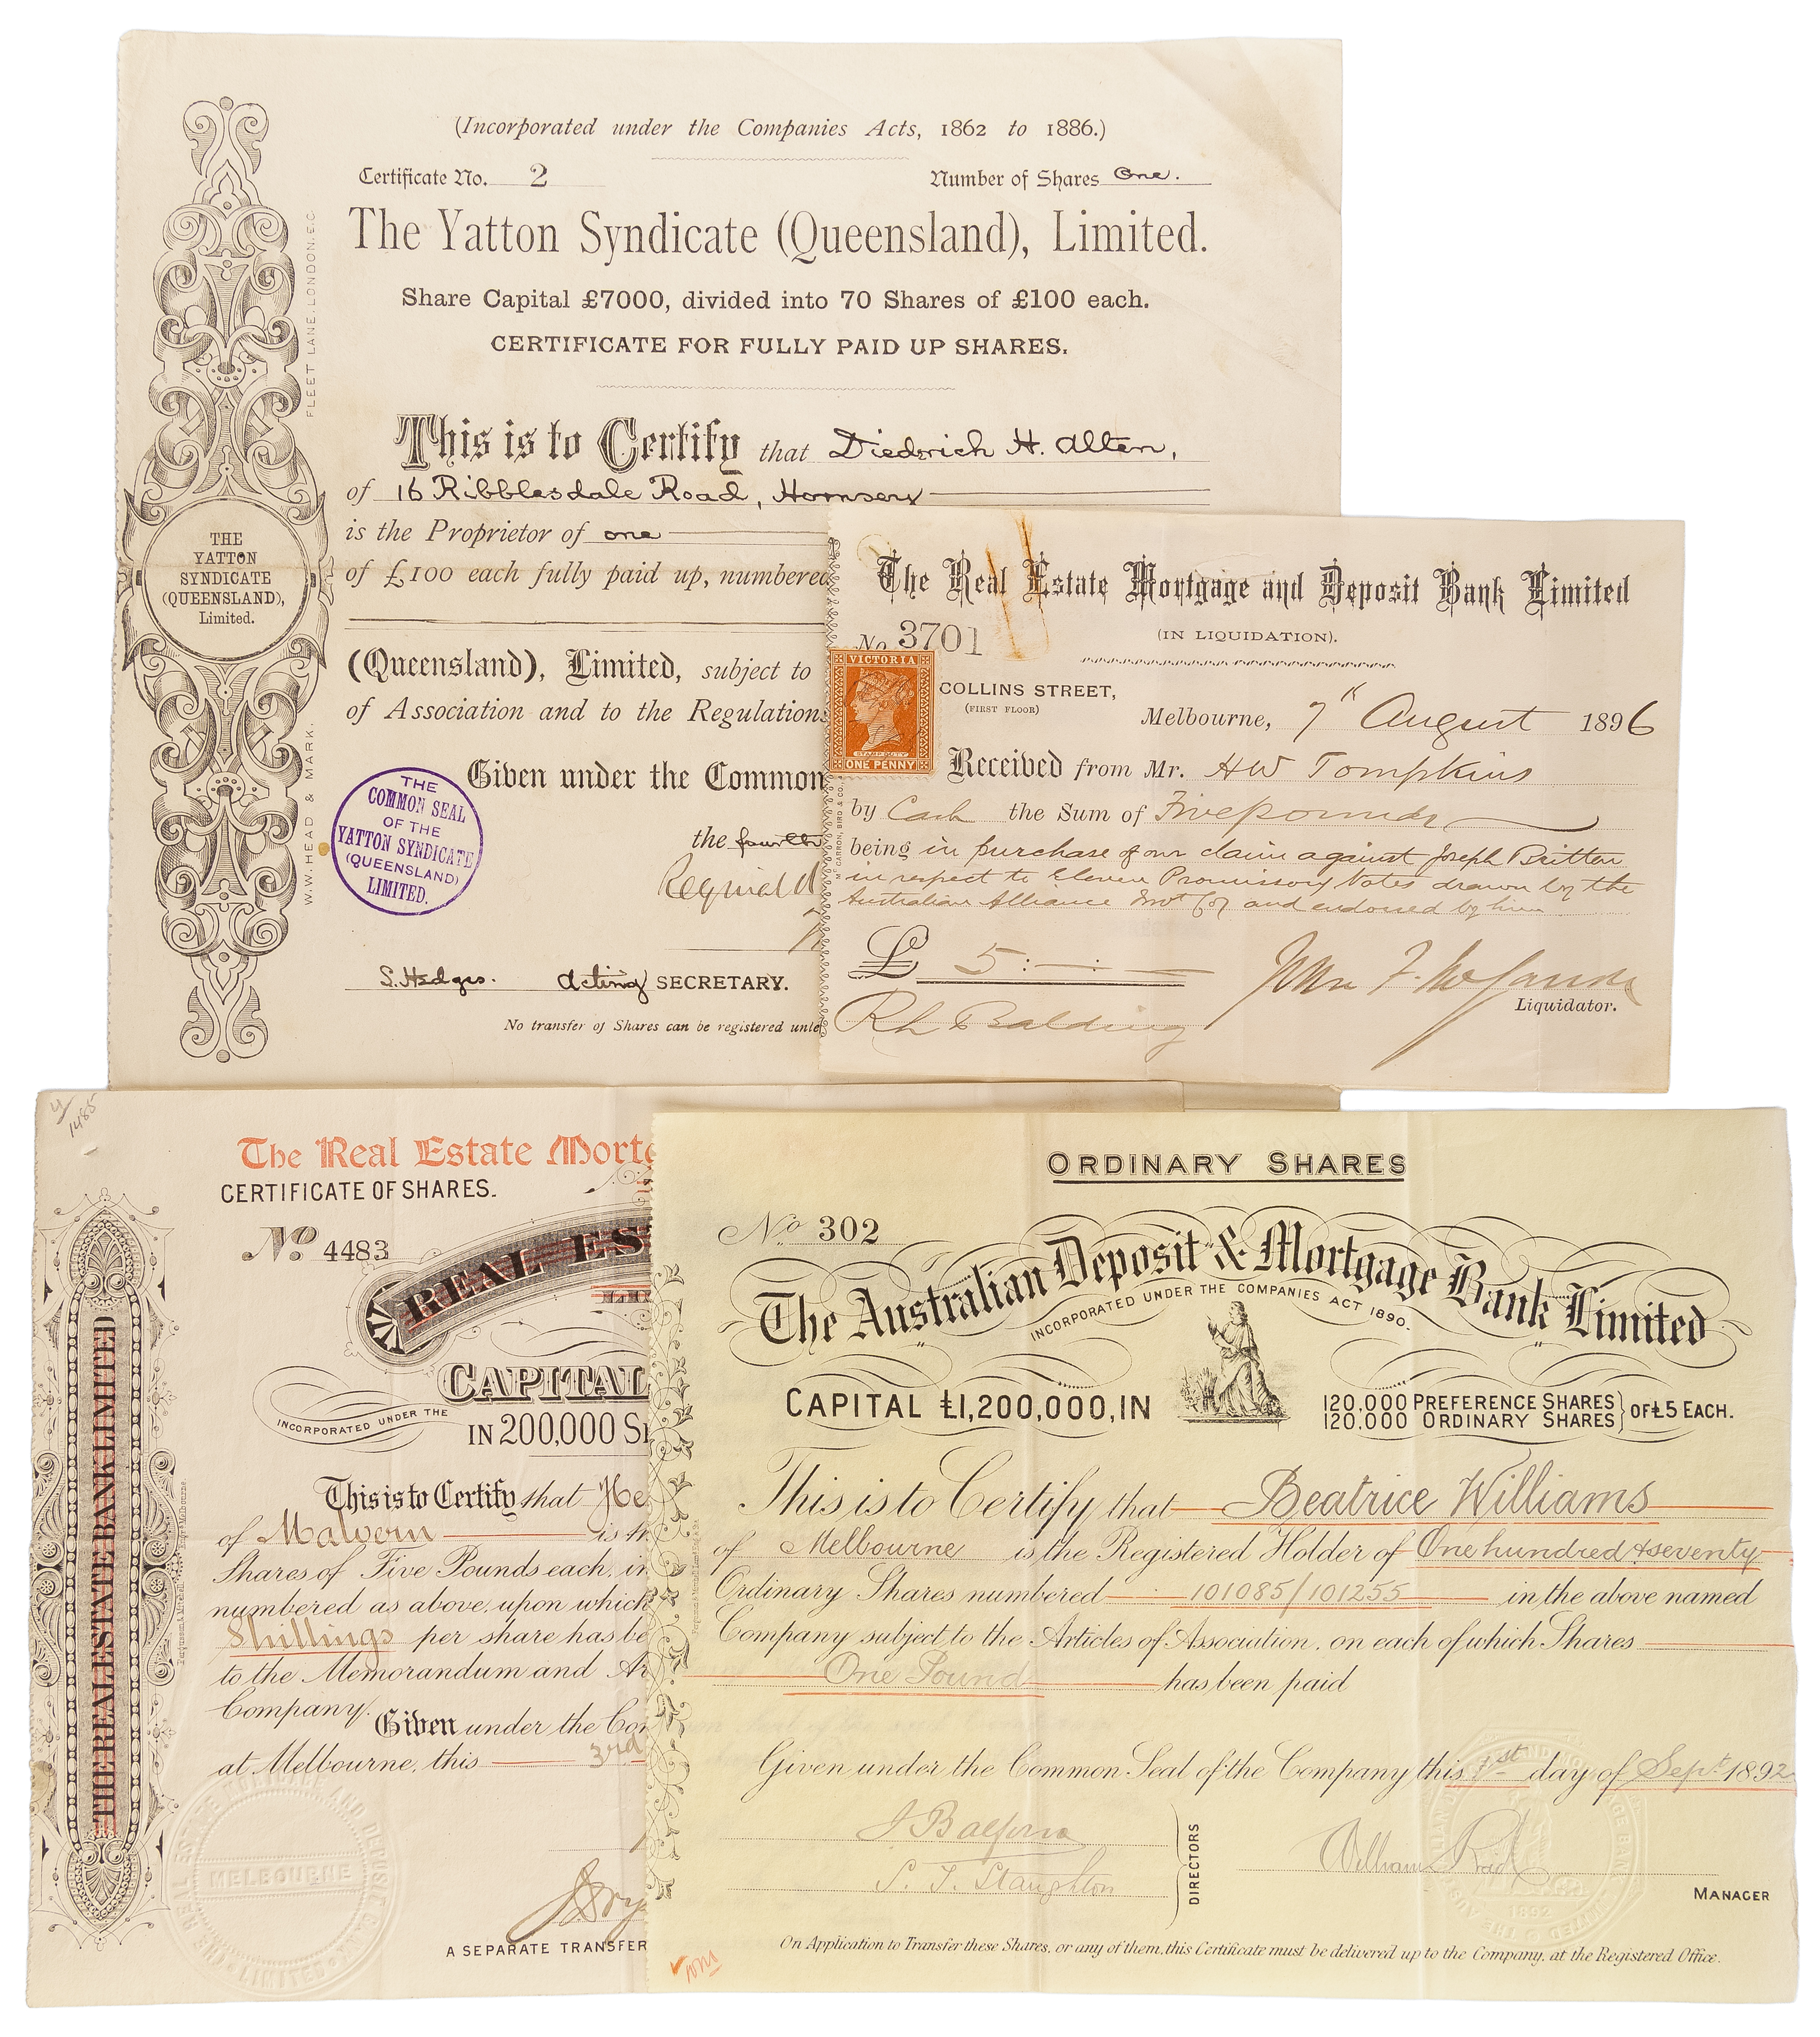 (Incorporated under the Companies Acts, 1862 to 1886.)
Certificate No. 2
Number of Shares One.
The Yatton Syndicate (Queensland), Limited.
Share Capital £7000, divided into 70 Shares of £100 each.
CERTIFICATE FOR FULLY PAID UP SHARES.
This is to Certify that Diederich H. Alten,
of 16 Ribblesdale Road, Hornsey
is the Proprietor of one
of £100 each fully paid up, numbered
(Queensland), Limited, subject to
of Association and to the Regulations
Given under the Common
the fourth
S. Hedges. Acting SECRETARY.
No transfer of Shares can be registered unle
THE
YATTON
SYNDICATE
(QUEENSLAND),
Limited.
W.W. HEAD & MARK. FLEET LANE, LONDON. E.C.
THE
COMMON SEAL
OF THE
YATTON SYNDICATE
(QUEENSLAND)
LIMITED.
The Real Estate Mortgage and Deposit Bank Limited
(IN LIQUIDATION).
No 3701
VICTORIA
STAMP DUTY
ONE PENNY
COLLINS STREET,
(FIRST FLOOR)
Melbourne, 7th August 1896
Received from Mr. HW Tompkins
by Cash the Sum of Five pounds
being in purchase of our claim against Joseph Britten
in respect to Eleven Promissory Notes drawn by the
Australian Alliance Invt Coy and endorsed by him
£ 5:—:—
Liquidator.
R L Balding
4/1485
The Real Estate Mortg
CERTIFICATE OF SHARES.
No. 4483
REAL ES
CAPITAL
INCORPORATED UNDER THE
IN 200,000 S
This is to Certify that He
of Malvern is th
Shares of Five Pounds each, in
numbered as above, upon which
Shillings per share has be
to the Memorandum and Ar
Company.
Given under the Com
at Melbourne, this 3rd
A SEPARATE TRANSFER
THE REAL ESTATE BANK LIMITED
THE REAL ESTATE MORTGAGE AND DEPOSIT BANK LIMITED
MELBOURNE
ORDINARY SHARES
No. 302
The Australian Deposit & Mortgage Bank Limited
INCORPORATED UNDER THE COMPANIES ACT 1890.
CAPITAL £1,200,000, IN
120,000 PREFERENCE SHARES
120,000 ORDINARY SHARES
OF £5 EACH.
This is to Certify that Beatrice Williams
of Melbourne is the Registered Holder of One hundred & seventy
Ordinary Shares numbered 101085/101255 in the above named
Company subject to the Articles of Association, on each of which Shares
One Pound has been paid
Given under the Common Seal of the Company this 1st day of Sept. 1892
J Balfour
S. T. Staughton
DIRECTORS
William Reid
MANAGER
1892
On Application to Transfer these Shares, or any of them, this Certificate must be delivered up to the Company, at the Registered Office.